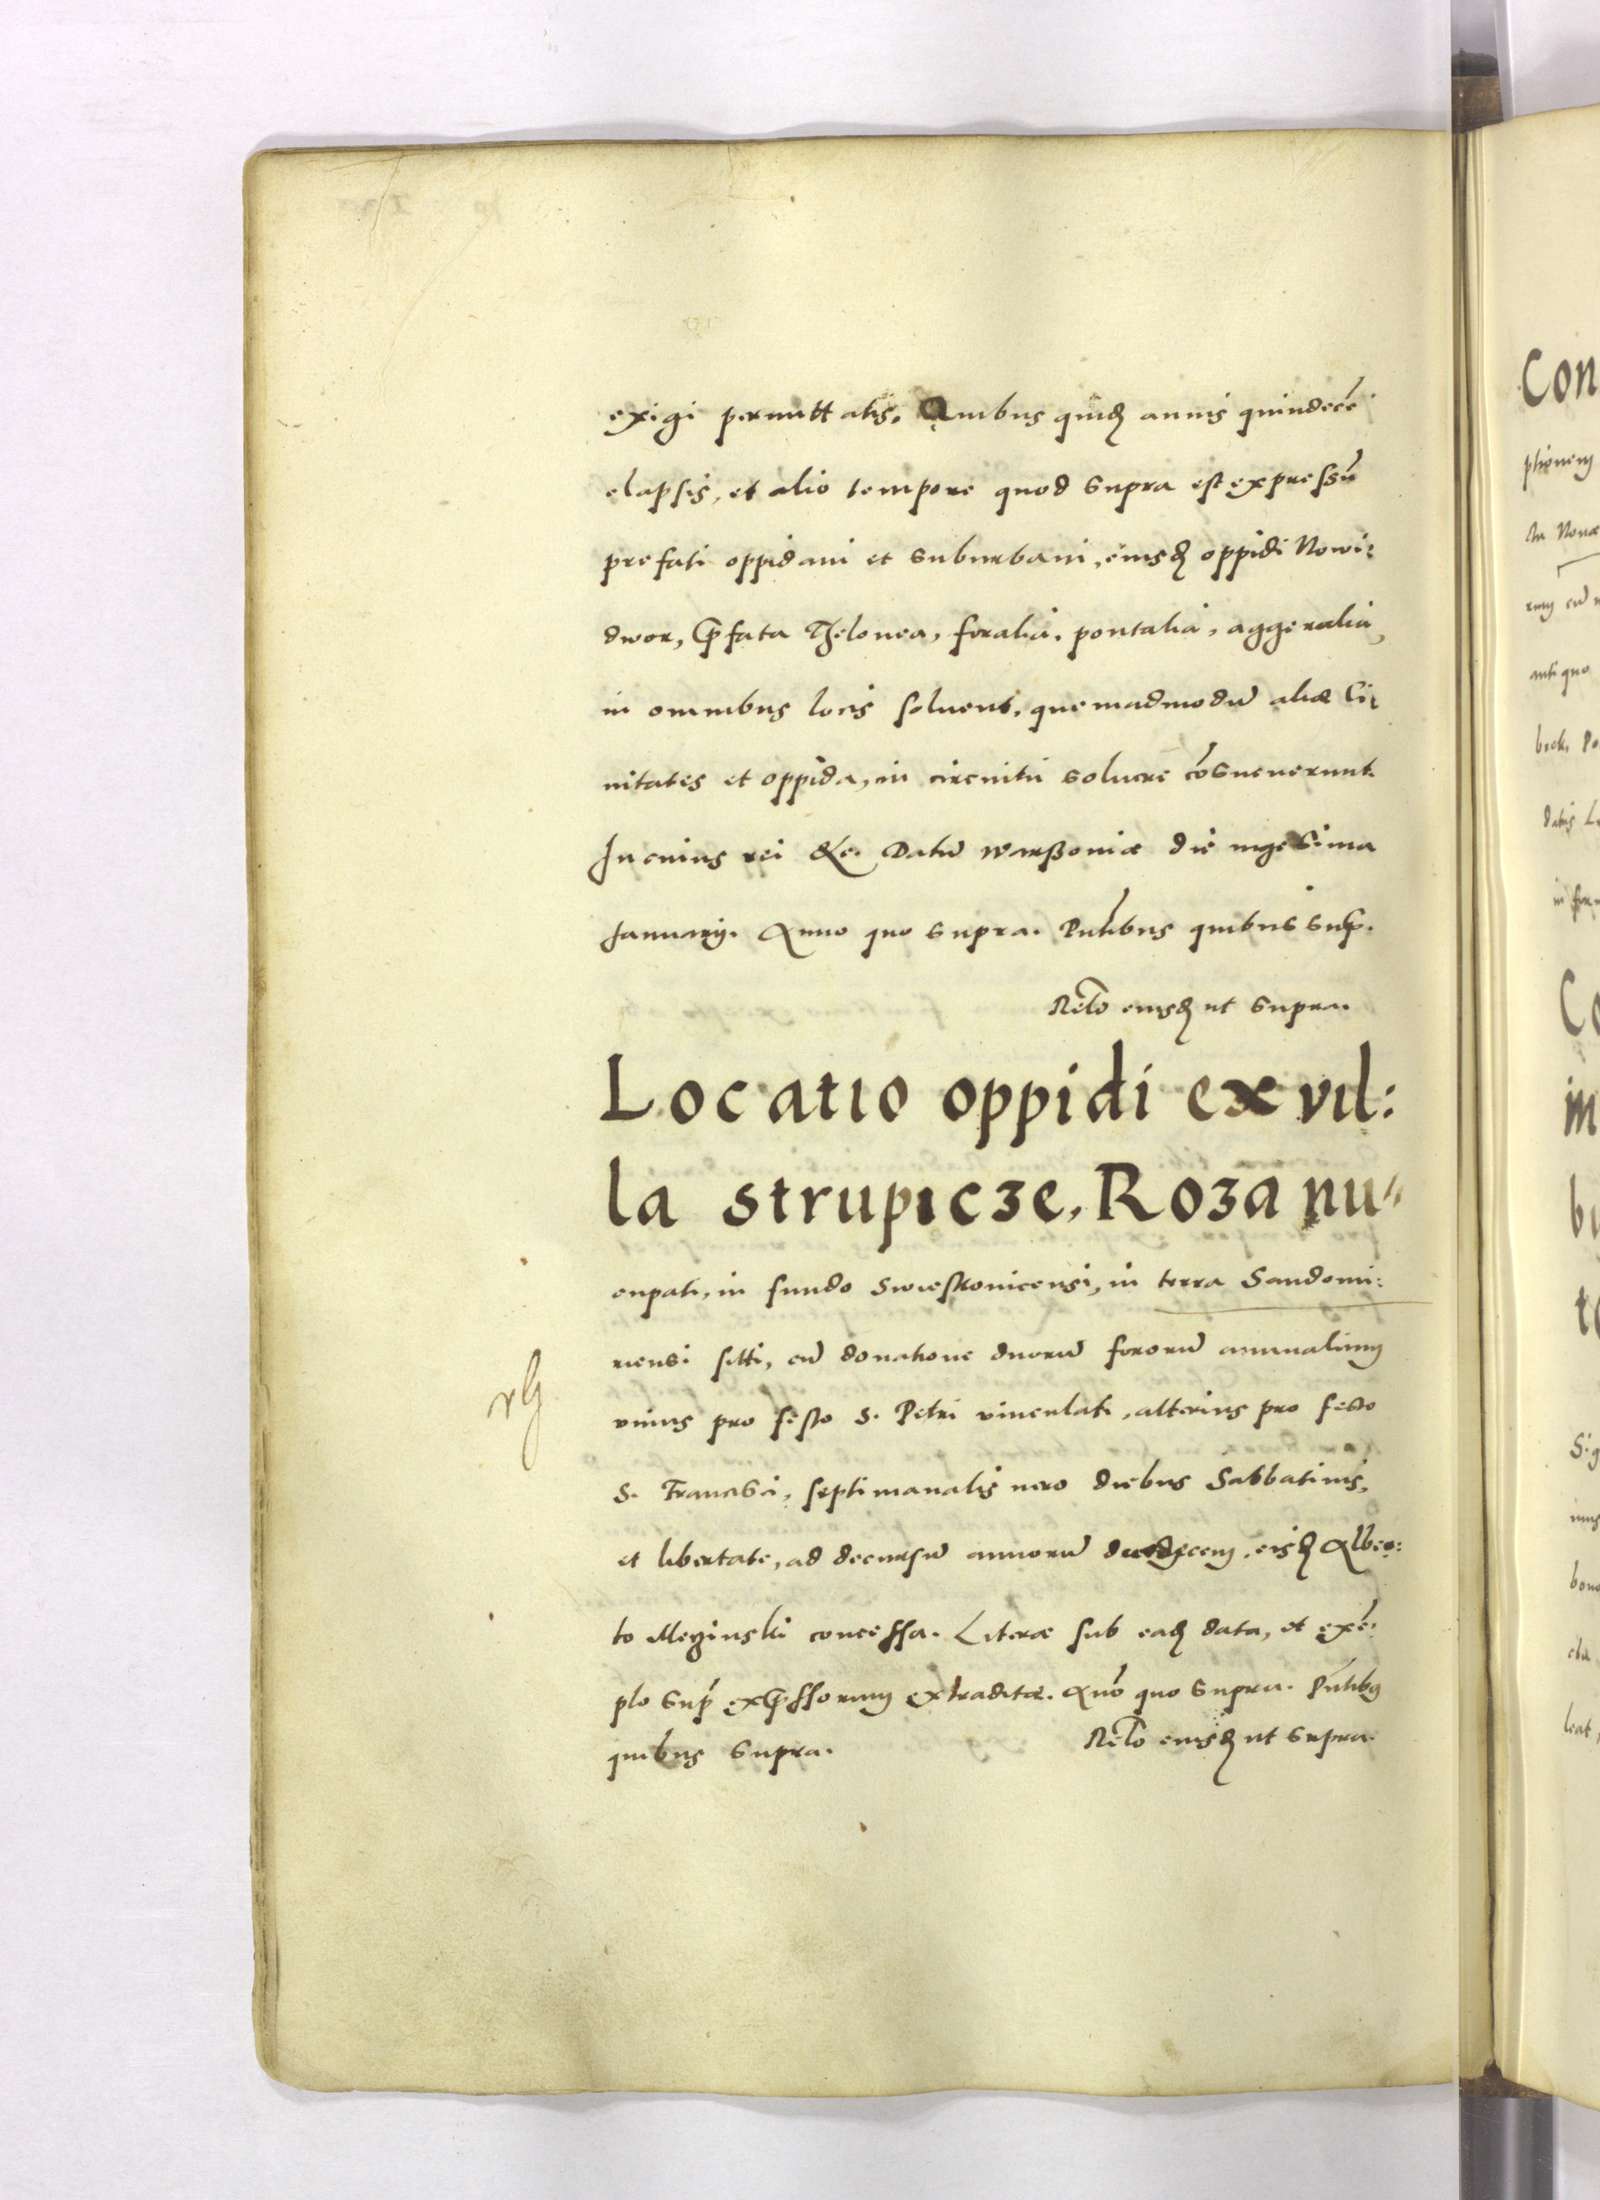 exigi permittatis. Quibus quidẽ annis quindecẽ
elapsis, et alio tempore quod supra est expressũ
prefati oppidani et suburbani, eiusdẽ oppidi Nowi:
dwor, p̃fata Thelonea, foralia, pontalia, aggeralia,
in omnibus locis soluent, quemadmodũ aliæ Ci:
uitates et oppida, in circuitu soluere cõsueuerunt.
In cuius rei &c. Datũ Warßouiæ die uigesima
Januarij. Anno quo supra. Pñtibus quibus sup̃.
Relõ eiusdẽ ut supra.
Locatio oppidi ex vil:
la strupicze, Roza nu„
cupati, in fundo Swiestouicensi, in terra Sandomi:
riensi sitti, cũ donatione duorũ fororũ annualium
vnius pro festo S. Petri vinculati, alterius pro festo
S. Francisci, septimanalis uero diebus Sabbatinis,
et libertate, ad decursũ annorũ duodecem, eisdẽ Alber:
to Meginski concessa. Literæ sub eadẽ data, et exẽ:
plo sup̃ exp̃ssorum extraditæ. Anõ quo supra. Pñtibus
quibus supra. Relõ eiusdẽ ut supra.